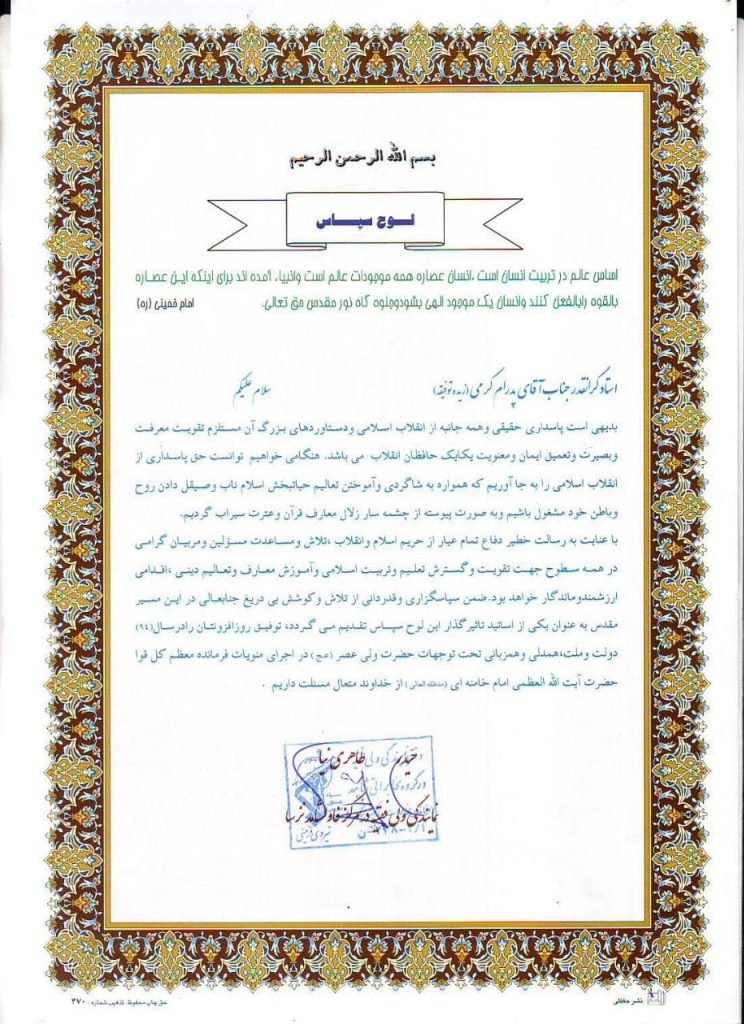 بسم الله الرحمن الرحیم
لوح سپاس
اساس عالم در تربیت انسان است ،انسان عصاره همه موجودات عالم است وانبیاء آمده اند برای اینکه این عصاره
بالقوه رابالفعل کنند وانسان یک موجود الهی بشودوجلوه گاه نور مقدس حق تعالی. امام خمینی (ره)
استاد گرانقدر جناب آقای پدرام کرمی (زیده توفیقه) سلام علیکم
بدیهی است پاسداری حقیقی وهمه جانبه از انقلاب اسلامی ودستاوردهای بزرگ آن مستلزم تقویت معرفت
وبصیرت وتعمیق ایمان ومعنویت یکایک حافظان انقلاب می باشد. هنگامی خواهیم توانست حق پاسداری از
انقلاب اسلامی را به جا آوریم که همواره به شاگردی وآموختن تعالیم حیاتبخش اسلام ناب وصیقل دادن روح
وباطن خود مشغول باشیم وبه صورت پیوسته از چشمه سار زلال معارف قرآن وعترت سیراب گردیم.
با عنایت به رسالت خطیر دفاع تمام عیار از حریم اسلام وانقلاب ،تلاش ومساعدت مسؤلین ومربیان گرامی
در همه سطوح جهت تقویت وگسترش تعلیم وتربیت اسلامی وآموزش معارف وتعالیم دینی ،اقدامی
ارزشمندوماندگار خواهد بود.ضمن سپاسگزاری وقدردانی از تلاش وکوشش بی دریغ جنابعالی در این مسیر
مقدس به عنوان یکی از اساتید تاثیرگذار این لوح سپاس تقدیم می گردد، توفیق روزافزونتان رادرسال(۹۴)
دولت وملت،همدلی وهمزبانی تحت توجهات حضرت ولی عصر (عج) در اجرای منویات فرمانده معظم کل قوا
حضرت آیت الله العظمی امام خامنه ای (مدظله العالی) از خداوند متعال مسئلت داریم .
طاهری نیا
نمایندگی ولی فقیه در
نیروی زمینی
نشر حفاظی
حق چاپ محفوظ. تذهیب شماره: ۴۷۰